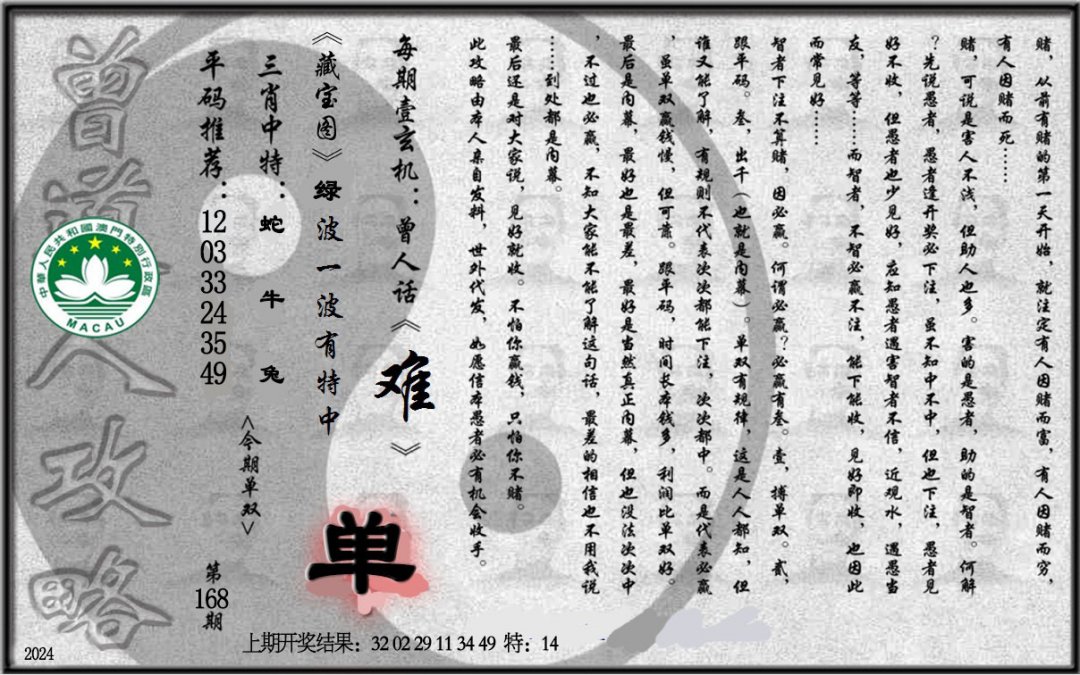 赌，从前有赌的第一天开始，就注定有人因赌而富，有人因赌而穷，
有人因赌而死……
赌，可说是害人不浅，但助人也多。害的是愚者，助的是智者。何解
？先说愚者，愚者逢开奖必下注，虽不知中不中，但也下注，愚者见
好不收，但愚者也少见好，应知愚者遇害智者不信，近观水，遇愚当
友，等等……而智者，不智必赢不注，能下能收，见好即收，也因此
而常见好……
智者下注不算赌，因必赢。何谓必赢？必赢有叁。壹，搏单双。贰，
跟平码。叁，出千（也就是内幕）。单双有规律，这是人人都知，但
谁又能了解，有规则不代表次次都能下注，次次都中。而是代表必赢
，虽单双赢钱慢，但可靠。跟平码，时间长本钱多，利润比单双好。
最后是内幕，最好也是最差，最好是当然真正内幕，但也没法次次中
，不过也必赢，不知大家能不能了解这句话，最差的相信也不用我说
……到处都是内幕。
最后还是对大家说，见好就收。不怕你赢钱，只怕你不赌。
此攻略由本人亲自发料，世外代发，如愿信本愚者必有机会收手。
每期壹玄机：曾人话《难》
《藏宝图》绿波一波有特中
单
三肖中特：蛇 牛 兔
<今期单双>
平码推荐：12 03 33 24 35 49
第168期
曾道人攻略
中華人民共和國澳門特別行政區
MACAU
上期开奖结果：32 02 29 11 34 49 特：14
2024